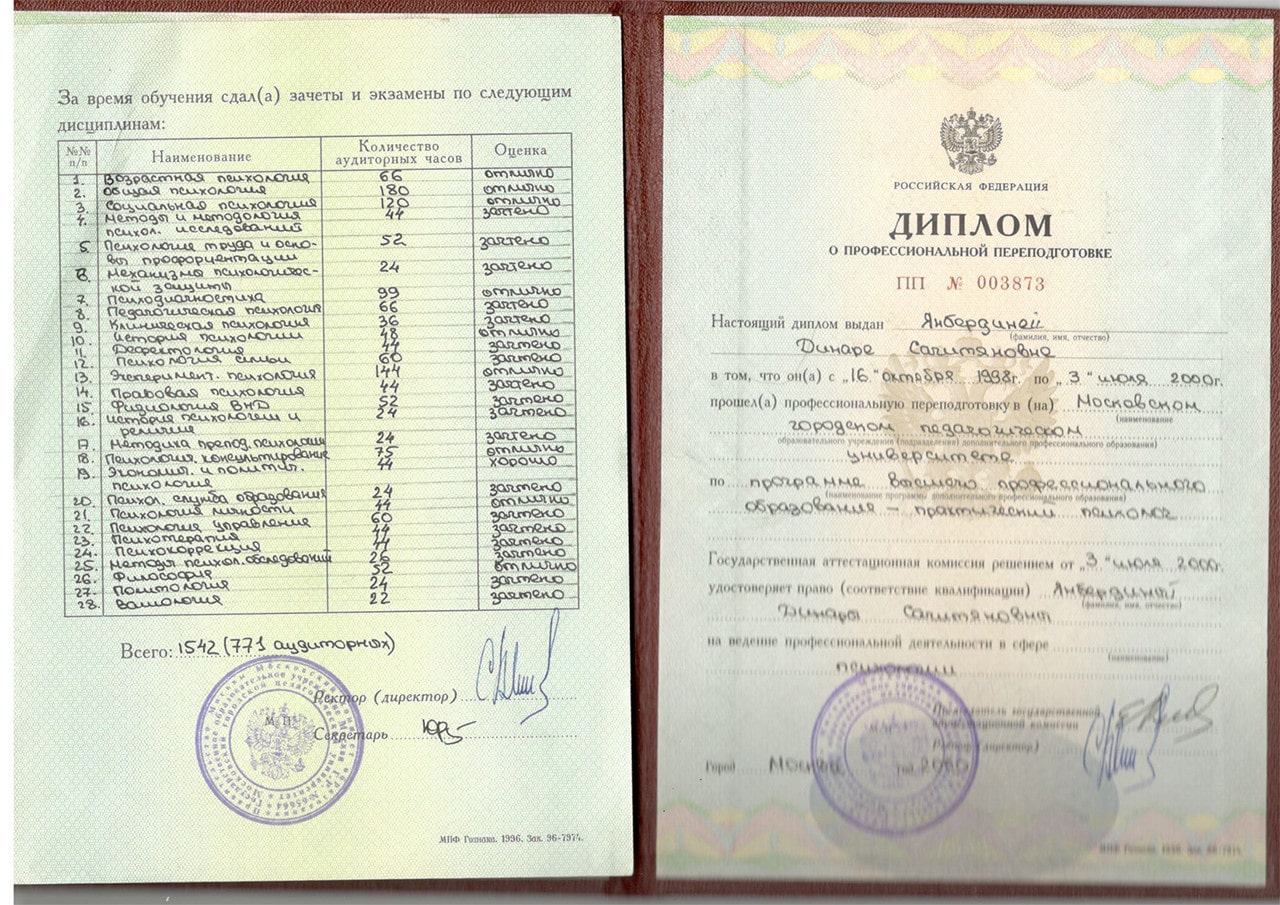 За время обучения сдал(а) зачеты и экзамены по следующим
дисциплинам:
№№ п/п Наименование Количество аудиторных часов Оценка
1. Возрастная психология 66 отлично
2. Общая психология 180 отлично
3. Социальная психология 120 отлично
4. Методы и методология 44 зачтено
психол. исследований
5. Психология труда и осно- 52 зачтено
вы профориентации
6. Механизмы психологичес- 24 зачтено
кой защиты
7. Психодиагностика 99 отлично
8. Педагогическая психология 66 зачтено
9. Клиническая психология 36 зачтено
10. История психологии 48 отлично
11. Дефектология 44 зачтено
12. Психология семьи 60 зачтено
13. Эксперимент. психология 144 отлично
14. Правовая психология 44 зачтено
15. Физиология ВНД 52 зачтено
16. История психологии и 24 зачтено
религии
17. Методика препод. психологии 24 зачтено
18. Психология консультирования 75 отлично
19. Эконом. и политич. 44 хорошо
психология
20. Психол. служба образования 24 зачтено
21. Психология личности 44 отлично
22. Психология управления 60 зачтено
23. Психотерапия 44 зачтено
24. Психокоррекция зачтено
25. Методы психол. обследований 26 зачтено
26. Философия 52 отлично
27. Политология 24 зачтено
28. Валеология 22 зачтено
Всего: 1542 (771 аудиторных)
Ректор (директор)
М.П.
Секретарь
МПФ Гознака. 1996. Зак. 96-7974.
РОССИЙСКАЯ ФЕДЕРАЦИЯ
ДИПЛОМ
О ПРОФЕССИОНАЛЬНОЙ ПЕРЕПОДГОТОВКЕ
ПП № 003873
Настоящий диплом выдан Янбердиной
(фамилия, имя, отчество)
Динаре Сагитяновне
в том, что он(а) с „16" октября 1998г. по „3" июля 2000г.
прошел(а) профессиональную переподготовку в (на) Московском
(наименование
городском педагогическом
образовательного учреждения (подразделения) дополнительного профессионального образования)
университете
по программе высшего профессионального
(наименование программы дополнительного профессионального образования)
образования – практический психолог
Государственная аттестационная комиссия решением от „3" июля 2000г.
удостоверяет право (соответствие квалификации) Янбердиной
(фамилия, имя, отчество)
Динары Сагитяновны
на ведение профессиональной деятельности в сфере
(наименование)
психологии
Председатель государственной
аттестационной комиссии
Ректор (директор)
Город Москва год 2000